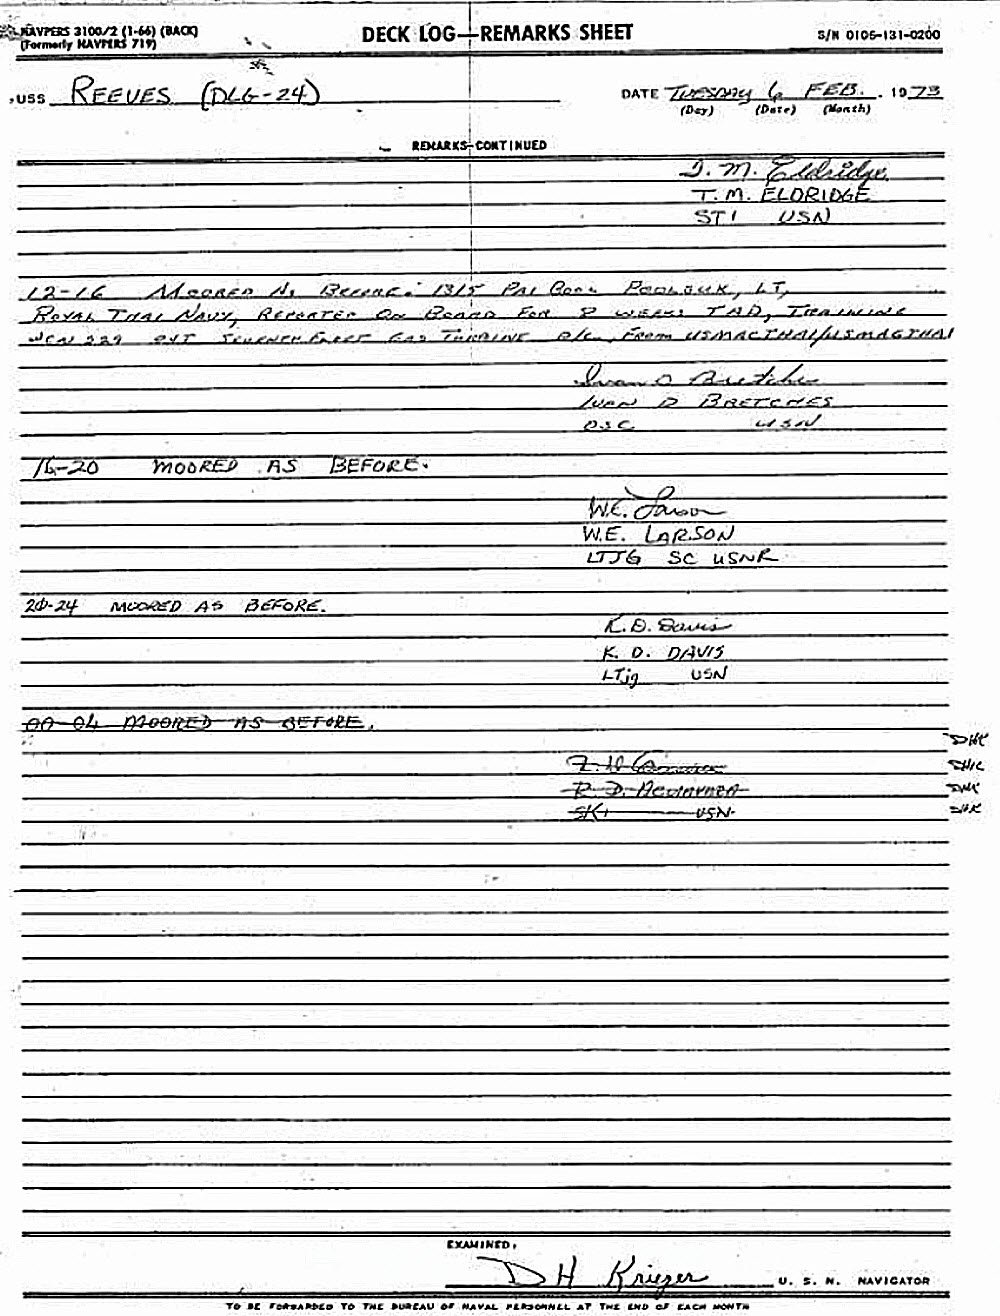 NAVPERS 3100/2 (1-66) (BACK)
(Formerly NAVPERS 719)
DECK LOG—REMARKS SHEET
S/N 0105-131-0200
USS REEVES (DLG-24)
DATE TUESDAY 6 FEB. 1973
(Day) (Date) (Month)
REMARKS-CONTINUED
T. M. Eldridge
T. M. ELDRIDGE
ST1 USN
12-16 MOORED AS BEFORE. 1315 PAI BOON LT,
ROYAL THAI NAVY, REPORTED ON BOARD FOR 8 WEEKS TAD, TRAINING
GAS TURBINE FROM USMACTHAI/USMAGTHAI
Ivan D Bretches
IVAN D BRETCHES
OSC USN
16-20 MOORED AS BEFORE.
W.E. Larson
W.E. LARSON
LTJG SC USNR
20-24 MOORED AS BEFORE.
K. D. Davis
K. D. DAVIS
LTjg USN
00-04 MOORED AS BEFORE.
DHK
DHK
R. D.
DHK
SK1 USN
DHK
EXAMINED:
D H Krieger U. S. N. NAVIGATOR
TO BE FORWARDED TO THE BUREAU OF NAVAL PERSONNEL AT THE END OF EACH MONTH